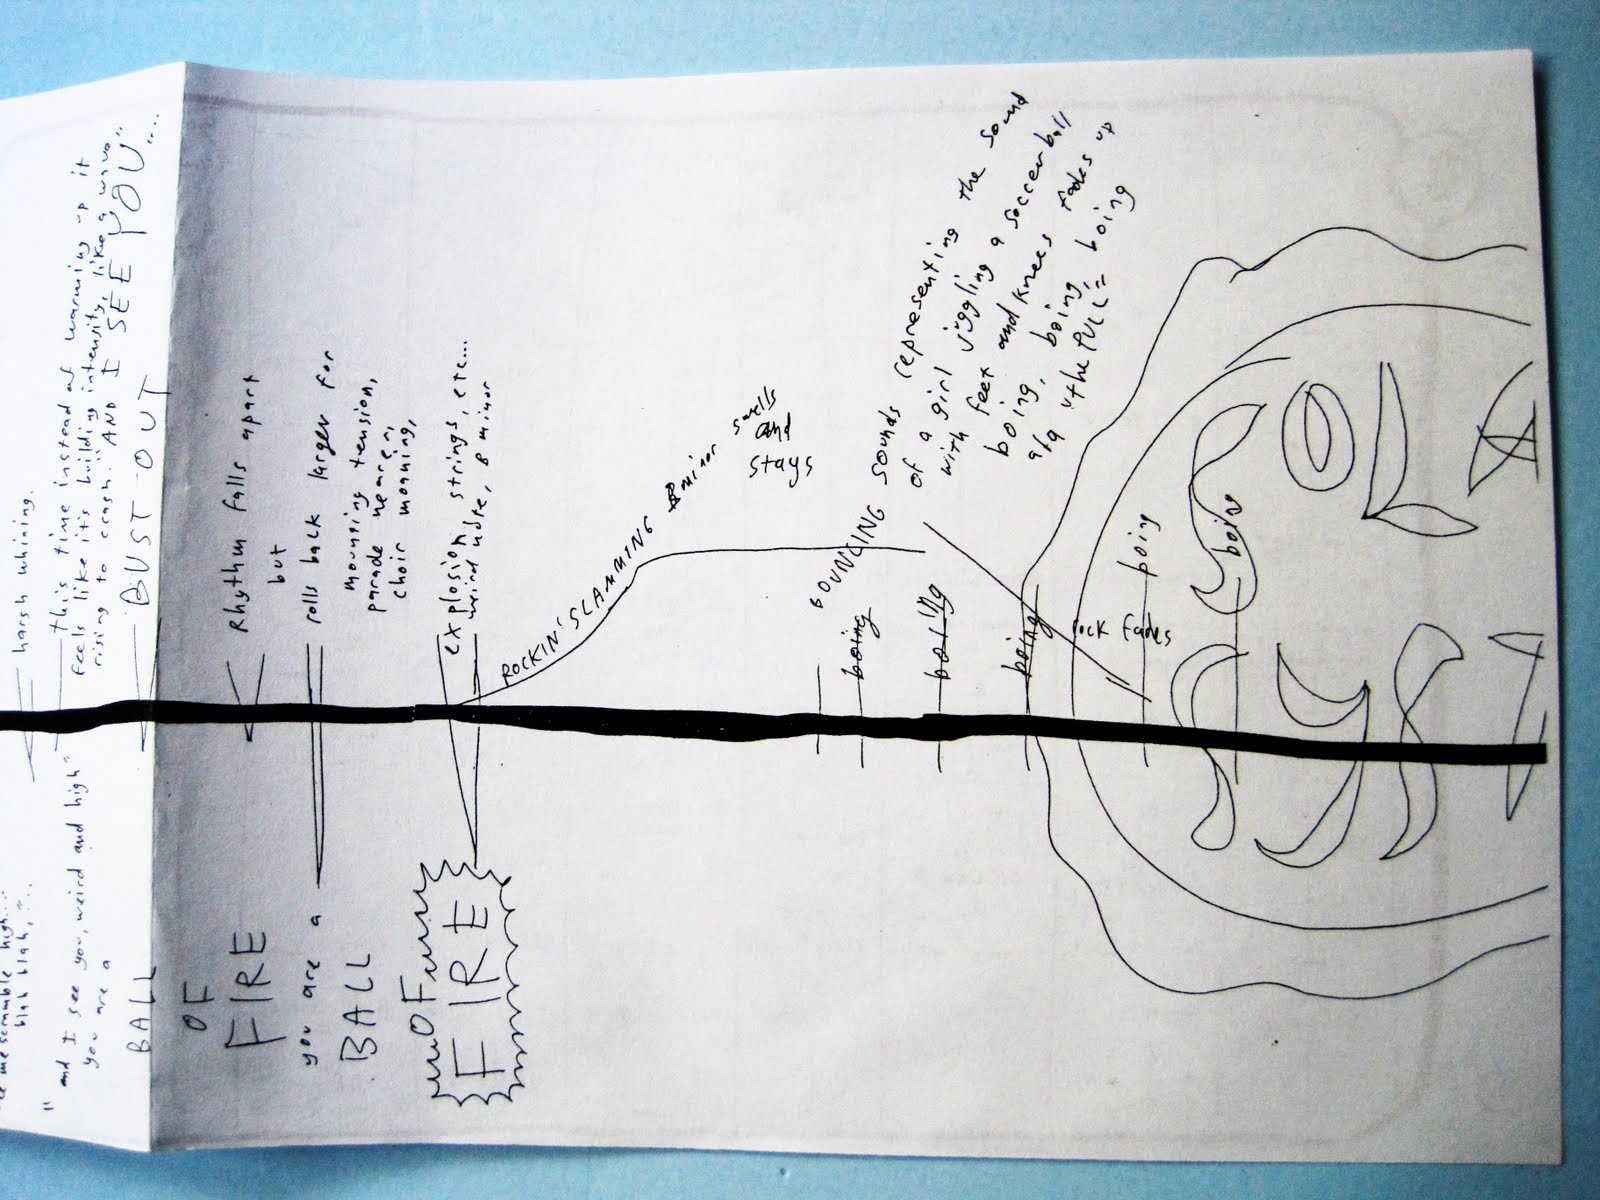 harsh whining.
this time instead of warming up it
feels like it's building intensity, like a wave
rising to crash. "AND I SEE YOU"....
BUST OUT
blah blah,
"and I see you, weird and high"
you are a
BALL
OF
FIRE
Rhythm falls apart
but
rolls back larger for
mounting tension,
parade nearer,
choir moaning,
you are a
BALL
explosion strings, etc...
weird note, B minor
OF
FIRE
ROCKIN' SLAMMING B minor swells
and
stays
BOUNCING sounds representing the sound
of a girl juggling a soccer ball
with feet and knees fades up
boing, boing, boing
a/a "the PULL"
boing
boing
boing
rock fades
boing
boing